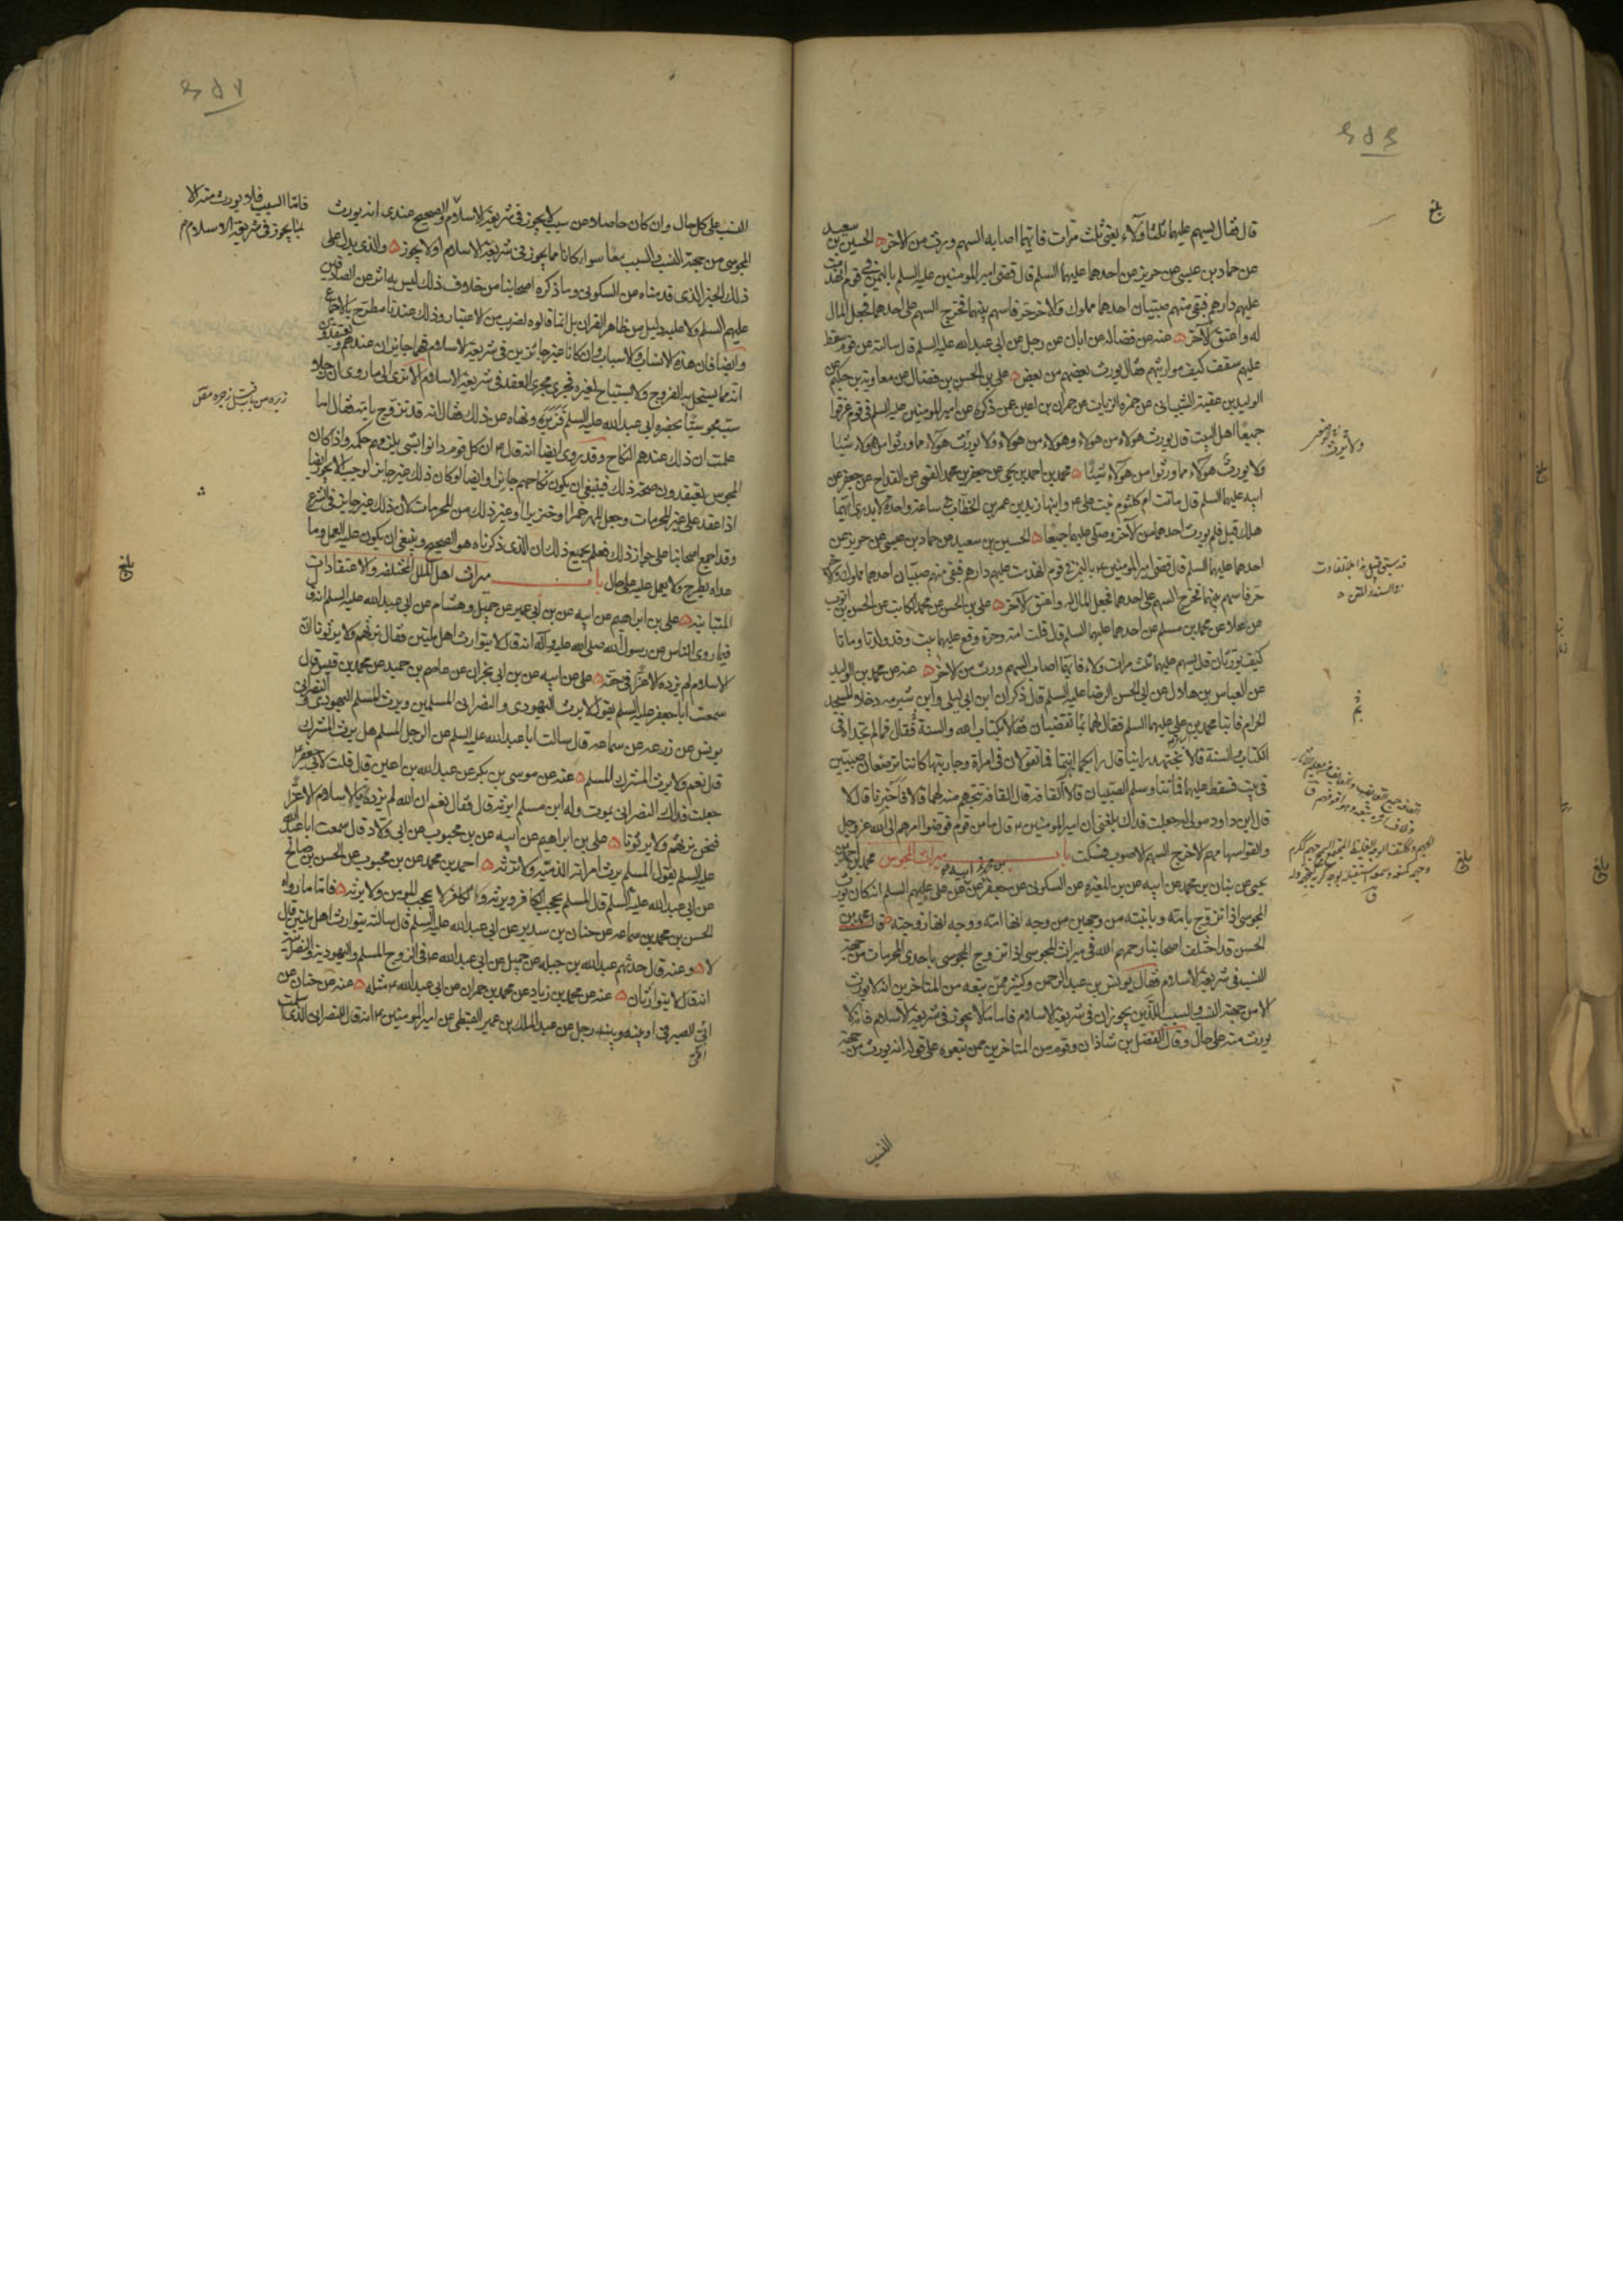 قال فقال يسهم عليهما ثلثا ولاء يعني ثلث مرات فايهما اصابه السهم ورث من الاخر الحسين بن سعيد
عن حماد بن عيسى عن حريز عن احدهما عليهما السلم قال قضى امير المومنين عليه السلم باليمن في قوم انهدمت
عليهم دارهم فبقى منهم صبيان احدهما مملوك والاخر حر فاسهم بينهما فخرج السهم على احدهما فجعل المال
له واعتق الآخر عنه عن فضاله عن ابان عن رجل عن ابي عبد الله عليه السلم قال سالته عن قوم سقط
عليهم سقف كيف مواريثهم فقال يورث بعضهم من بعض علي بن الحسن بن فضال عن معاوية بن حكيم عن
الوليد بن عقبة الشيباني عن حمزه الزيات عن حمران بن اعين عمن ذكره عن امير المومنين عليه السلم في قوم غرقوا
جميعا اهل البيت قال يورث هولاء من هولاء وهولاء من هولاء ولا يورث هولاء مما ورثوا من هولاء شيئا
ولا يورث هولاء مما ورثوا من هولاء شيئا محمد بن احمد بن يحيى عن جعفر بن محمد القمي عن القداح عن جعفر عن
ابيه عليهما السلم قال ماتت ام كلثوم بنت علي ع وابنها زيد بن عمر بن الخطاب في ساعة واحدة لا يدرى ايهما
هلك قبل فلم يورث احدهما من الآخر وصلى عليهما جميعا الحسين بن سعيد عن حماد بن عيسى عن حريز عن
احدهما عليهما السلم قال قضى امير المومنين ع باليمن في قوم انهدمت عليهم دارهم فبقى منهم صبيان احدهما مملوك والآخر
حر فاسهم بينهما فخرج السهم على احدهما فجعل المال له واعتق الآخر علي بن الحسن عن محمد الكاتب عن الحسن بن ايوب
عن العلا عن محمد بن مسلم عن احدهما عليهما السلم قال قلت امة وحرة وقع عليهما بيت وقد ولدتا وماتا
كيف يورثان قال يسهم عليهما ثلث مرات ولاء فايهما اصاب السهم ورث من الاخر عنه عن محمد بن الوليد
عن العباس بن هلال عن ابي الحسن الرضا عليه السلم قال ذكر ان ابن ابي ليلى وابن شبرمه دخلا المسجد
الحرام فاتيا محمد بن علي عليهما السلم فقال لهما بما تقضيان فقالا بكتاب الله والسنة فقال فما لم تجداه في
الكتاب والسنة قالا نجتهد راينا قال رايكما انتما فما تقولان في امراة وجاريتها كانتا ترضعان صبيين
في بيت فسقط عليهما فماتتا وسلم الصبيان قالا القافة قال القافة يتجهم منه لهما قالا فاخبرنا قال لا
قال ابن داود مولى له جعلت فداك بلغني ان امير المومنين ع قال ما من قوم فوضوا امرهم الى الله عز وجل
والقوا سهامهم الا خرج السهم الاصوب فسكت باب ميراث المجوس محمد بن احمد بن
يحيى عن بنان بن محمد عن ابيه عن بن المغيره عن السكوني عن جعفر عن ابيه عن علي عليهم السلم انه كان يورث
المجوسي اذا تزوج بامه وبابنته من وجهين من وجه انها امه ووجه انها زوجته قال محمد بن
الحسن قد اختلف اصحابنا رحمهم الله في ميراث المجوسي اذا تزوج المجوسي باحدى المحرمات من جهة
النسب في شريعة الاسلام فقال يونس بن عبد الرحمن وكثير ممن تبعه من المتاخرين انه لا يورث
الا من جهة النسب والسبب اللذين يجوزان في شريعة الاسلام فاما ما لا يجوز في شريعة الاسلام فانه لا
يورث منه على حال وقال الفضل بن شاذان وقوم من المتاخرين ممن تبعوه على قوله انه يورث من جهة
النسب
بلغ
النسب على كل حال وان كان حاصلا من سبب لا يجوز في شريعة الاسلام والصحيح عندي انه يورث
فاما السبب فلا يورث منه الا
بما يجوز في شريعة الاسلام
المجوسي من جهة النسب والسبب معا سواء كانا مما يجوز في شريعة الاسلام او لا يجوز والذي يدل على
ذلك الخبر الذي قدمناه عن السكوني وما ذكره اصحابنا من خلاف ذلك ليس به اثر عن الصادقين
عليهم السلم ولا عليه دليل من ظاهر القران بل انما قالوه لضرب من الاعتبار وذلك عندنا مطرح بالاجماع
وايضا فان هذه الانساب والاسباب وان كانا غير جائزين في شريعة الاسلام فهما جايزان عندهم ويعتقدون
انه مما يستحل به الفروج ولا يستباح لغيره فجرى مجرى العقد في شريعة الاسلام الا ترى الى ما روى ان رجلا
سب مجوسيا بحضرة ابي عبد الله عليه السلم فزبره ونهاه عن ذلك فقال انه قد تزوج بامه فقال اما
علمت ان ذلك عندهم النكاح وقد روى ايضا انه قال ع ان كل قوم دانوا بشي يلزمهم حكمه واذا كان
المجوس يعتقدون صحة ذلك فينبغي ان يكون نكاحهم جايزا وايضا لو كان ذلك غير جايز لوجب الا يجوز ايضا
اذا عقد على غير المحرمات وجعل المهر خمرا او خنزيرا او غير ذلك من المحرمات لان ذلك غير جايز في الشرع
وقد اجمع اصحابنا على جواز ذلك فعلم بجميع ذلك ان الذي ذكرناه هو الصحيح وينبغي ان يكون عليه العمل وما
عداه يطرح ولا يعمل عليه على حال باب ميراث اهل الملل المختلفة والاعتقادات
المتباينة علي بن ابراهيم عن ابيه عن بن ابي عمير عن جميل وهشام عن ابي عبد الله عليه السلم انه قال
فيما روى الناس عن رسول الله صلى الله عليه وآله انه قال لا يتوارث اهل ملتين فقال نرثهم ولا يرثونا ان
الاسلام لم يزده الا عزا في حقه علي عن ابيه عن بن ابي نجران عن عاصم بن حميد عن محمد بن قيس قال
سمعت ابا جعفر عليه السلم يقول لا يرث اليهودي والنصراني المسلمين ويرث المسلم اليهودي والنصراني
يونس عن زرعه عن سماعه قال سالت ابا عبد الله عليه السلم عن الرجل المسلم هل يرث المشرك
قال نعم ولا يرث المشرك المسلم عنه عن موسى بن بكر عن عبد الله بن اعين قال قلت لابي جعفر ع
جعلت فداك النصراني يموت وله ابن مسلم ايرثه قال فقال نعم ان الله لم يزده بالاسلام الا عزا
فنحن نرثهم ولا يرثونا علي بن ابراهيم عن ابيه عن بن محبوب عن ابي ولاد قال سمعت ابا عبد الله
عليه السلم يقول المسلم يرث امراته الذميه ولا ترثه احمد بن محمد عن بن محبوب عن الحسن بن صالح
عن ابي عبد الله عليه السلم قال المسلم يحجب الكافر ويرثه والكافر لا يحجب المومن ولا يرثه فاما ما رواه
الحسن بن محمد بن سماعه عن حنان بن سدير عن ابي عبد الله عليه السلم قال سالته يتوارث اهل ملتين قال
لا وعنه قال حدثهم عبد الله بن جبله عن جميل عن ابي عبد الله ع في الزوج المسلم واليهودية والنصرانية
انه قال لا يتوارثان عنه عن محمد بن زياد عن محمد بن حمران عن ابي عبد الله ع مثله عنه عن حنان عن
امي الصيرفي او بينه وبينه رجل عن عبد الملك بن عمير القبطي عن امير المومنين ع انه قال للنصراني الذي اسلمت
بلغ